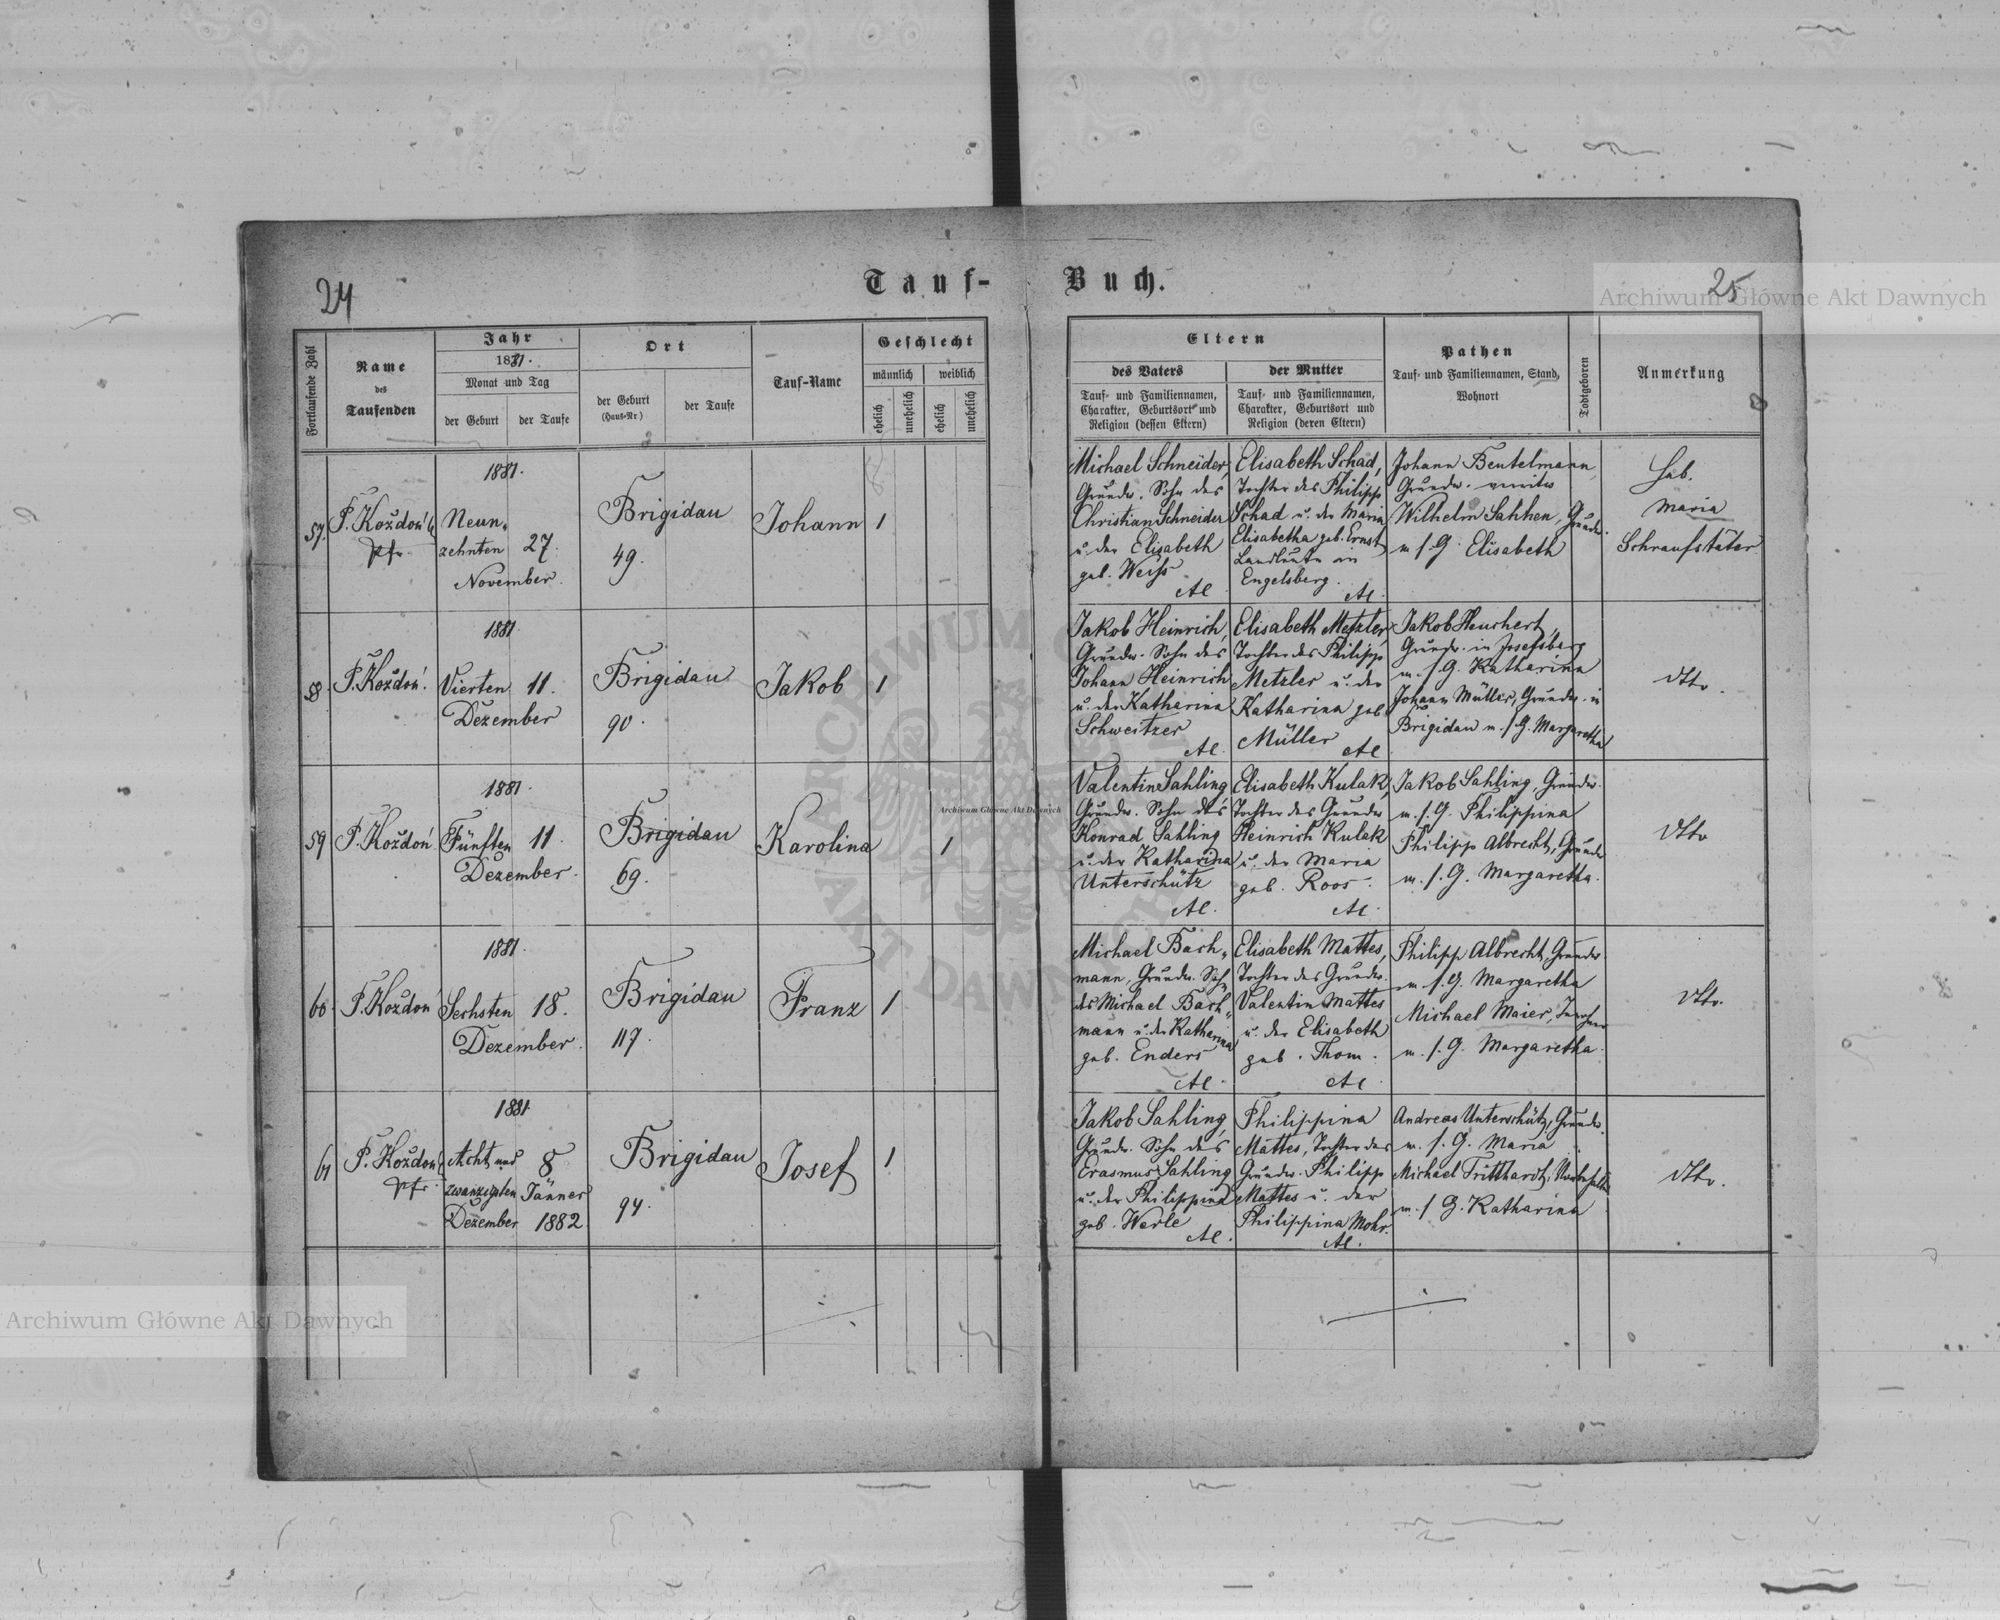 24
Tauf-
Buch.
25
Archiwum Główne Akt Dawnych
Fortlaufende Zahl
Name
des
Taufenden
Jahr
1881.
Monat und Tag
der Geburt
der Taufe
Ort
der Geburt
(Haus-Nr.)
der Taufe
Tauf-Name
Geschlecht
männlich
weiblich
ehelich
unehelich
ehelich
unehelich
Eltern
des Vaters
Tauf- und Familiennamen,
Charakter, Geburtsort und
Religion (dessen Eltern)
der Mutter
Tauf- und Familiennamen,
Charakter, Geburtsort und
Religion (deren Eltern)
Pathen
Tauf- und Familiennamen, Stand,
Wohnort
Todtgeboren
Anmerkung
57.
P. Koždoń
Pfr.
1881.
Neun-
zehnten
November.
27.
Brigidau
49.
Johann
1
Michael Schneider,
Grundw. Sohn des
Christian Schneider
u. der Elisabeth
geb. Weiss
AC.
Elisabeth Schad,
Tochter des Philipp
Schad u. der Maria
Elisabetha geb. Ernst
Landleute in
Engelsberg.
AC.
Johann Beutelmann,
Grundw.
Wilhelm Sahhen, Grundw.
m. s. G. Elisabeth
Heb.
Maria
Schraufstäter
58.
P. Koždoń.
1881.
Vierten
Dezember
11.
Brigidau
90.
Jakob
1
Jakob Heinrich,
Grundw. Sohn des
Johann Heinrich
u. der Katharina
Schweitzer
AC.
Elisabeth Metzler,
Tochter des Philipp
Metzler u. der
Katharina geb.
Müller
AC
Jakob Heuchert,
Grundw. in Josefsberg
m. s. G. Katharina
Johann Müller, Grundw. in
Brigidau m. s. G. Margaretha
dtto.
59
P. Koždoń.
1881.
Fünften
Dezember.
11.
Brigidau
69.
Karolina
1
Valentin Sahling
Grundw. Sohn des
Konrad Sahling
u. der Katharina
Unterschütz
AC.
Elisabeth Kulak,
Tochter des Grundw.
Heinrich Kulak
u. der Maria
geb. Roos.
AC.
Jakob Sahling, Grundw.
m. s. G. Philippina
Philipp Albrecht, Grundw.
m. s. G. Margaretha.
dtto
60.
P. Koždoń
1881.
Sechsten
Dezember.
18.
Brigidau
117.
Franz
1
Michael Bach-
mann, Grundw. Sohn
des Michael Bach-
mann u. der Katharina
geb. Enders
AC.
Elisabeth Mattes,
Tochter des Grundw.
Valentin Mattes
u. der Elisabeth
geb. Thom.
AC.
Philipp Albrecht, Grundw.
m. s. G. Margaretha
Michael Maier,
m. s. G. Margaretha.
dtto.
61
P. Koždoń
Pfr.
1881
Acht und
zwanzigsten
Dezember
8
Jänner
1882.
Brigidau
94.
Josef
1
Jakob Sahling,
Grundw. Sohn des
Erasmus Sahling
u. der Philippina
geb. Werle
AC.
Philippina
Mattes, Tochter des
Grundw. Philipp
Mattes u. der
Philippina Mohr.
AC.
Andreas Unterschütz, Grundw.
m. s. G. Maria
Michael Tritthardt,
m. s. G. Katharina
dtto.
Archiwum Główne Akt Dawnych
Archiwum Główne Akt Dawnych